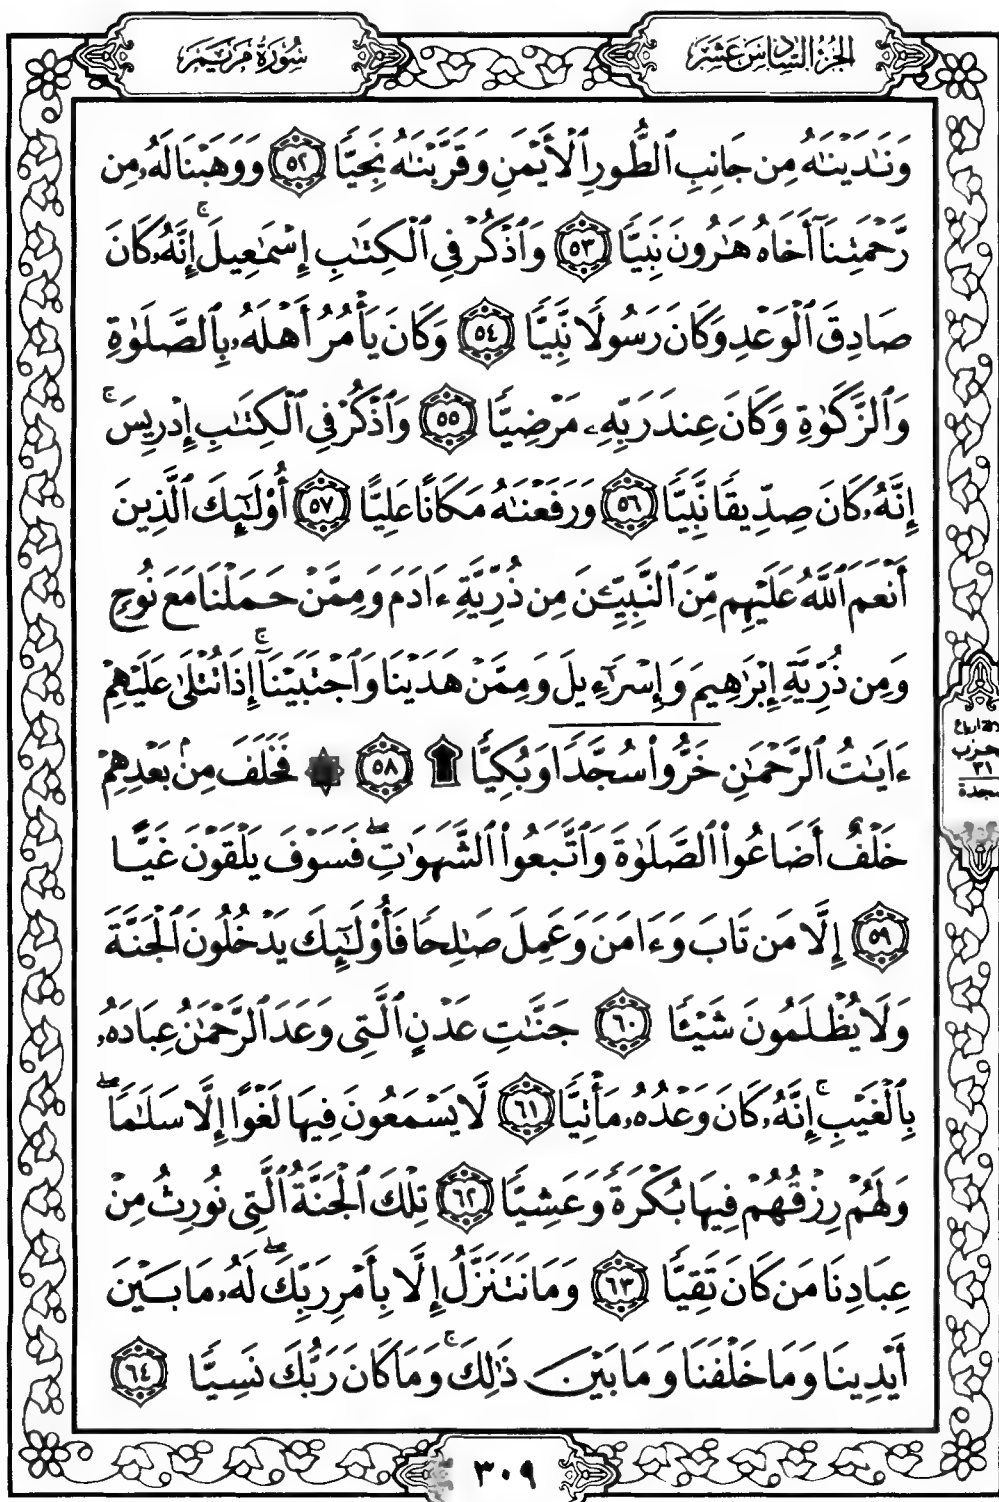 الجزء السادس عشر
سورة مريم
وَنَـٰدَيۡنَـٰهُ مِن جَانِبِ ٱلطُّورِ ٱلۡأَيۡمَنِ وَقَرَّبۡنَـٰهُ نَجِيًّا ٥٢ وَوَهَبۡنَا لَهُۥ مِن
رَّحۡمَتِنَآ أَخَاهُ هَـٰرُونَ نَبِيًّا ٥٣ وَٱذۡكُرۡ فِي ٱلۡكِتَـٰبِ إِسۡمَـٰعِيلَۚ إِنَّهُۥ كَانَ
صَادِقَ ٱلۡوَعۡدِ وَكَانَ رَسُولًا نَّبِيًّا ٥٤ وَكَانَ يَأۡمُرُ أَهۡلَهُۥ بِٱلصَّلَوٰةِ
وَٱلزَّكَوٰةِ وَكَانَ عِندَ رَبِّهِۦ مَرۡضِيًّا ٥٥ وَٱذۡكُرۡ فِي ٱلۡكِتَـٰبِ إِدۡرِيسَۚ
إِنَّهُۥ كَانَ صِدِّيقًا نَّبِيًّا ٥٦ وَرَفَعۡنَـٰهُ مَكَانًا عَلِيًّا ٥٧ أُوْلَـٰٓئِكَ ٱلَّذِينَ
أَنۡعَمَ ٱللَّهُ عَلَيۡهِم مِّنَ ٱلنَّبِيِّـۧنَ مِن ذُرِّيَّةِ ءَادَمَ وَمِمَّنۡ حَمَلۡنَا مَعَ نُوحٍ
وَمِن ذُرِّيَّةِ إِبۡرَٰهِيمَ وَإِسۡرَـٰٓءِيلَ وَمِمَّنۡ هَدَيۡنَا وَٱجۡتَبَيۡنَآۚ إِذَا تُتۡلَىٰ عَلَيۡهِمۡ
ءَايَـٰتُ ٱلرَّحۡمَـٰنِ خَرُّواْ سُجَّدًا وَبُكِيًّا ۩ ٥٨ ۞ فَخَلَفَ مِنۢ بَعۡدِهِمۡ
خَلۡفٌ أَضَاعُواْ ٱلصَّلَوٰةَ وَٱتَّبَعُواْ ٱلشَّهَوَٰتِۖ فَسَوۡفَ يَلۡقَوۡنَ غَيًّا
٥٩ إِلَّا مَن تَابَ وَءَامَنَ وَعَمِلَ صَـٰلِحًا فَأُوْلَـٰٓئِكَ يَدۡخُلُونَ ٱلۡجَنَّةَ
وَلَا يُظۡلَمُونَ شَيۡـًٔا ٦٠ جَنَّـٰتِ عَدۡنٍ ٱلَّتِي وَعَدَ ٱلرَّحۡمَـٰنُ عِبَادَهُۥ
بِٱلۡغَيۡبِۚ إِنَّهُۥ كَانَ وَعۡدُهُۥ مَأۡتِيًّا ٦١ لَّا يَسۡمَعُونَ فِيهَا لَغۡوًا إِلَّا سَلَـٰمًاۖ
وَلَهُمۡ رِزۡقُهُمۡ فِيهَا بُكۡرَةً وَعَشِيًّا ٦٢ تِلۡكَ ٱلۡجَنَّةُ ٱلَّتِي نُورِثُ مِنۡ
عِبَادِنَا مَن كَانَ تَقِيًّا ٦٣ وَمَا نَتَنَزَّلُ إِلَّا بِأَمۡرِ رَبِّكَۖ لَهُۥ مَا بَيۡنَ
أَيۡدِينَا وَمَا خَلۡفَنَا وَمَا بَيۡنَ ذَٰلِكَۚ وَمَا كَانَ رَبُّكَ نَسِيًّا ٦٤
٣٠٩
حزب
٣١
سجدة